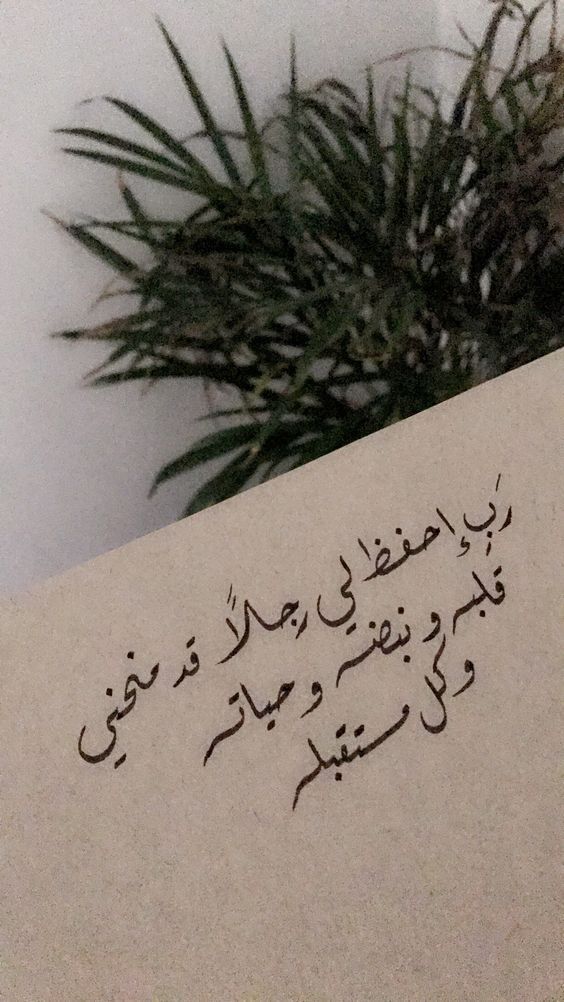 رَبِ إحفظ لي رجلاً قد منحني
قلبه و نبضه و حياته
و كل مستقبله